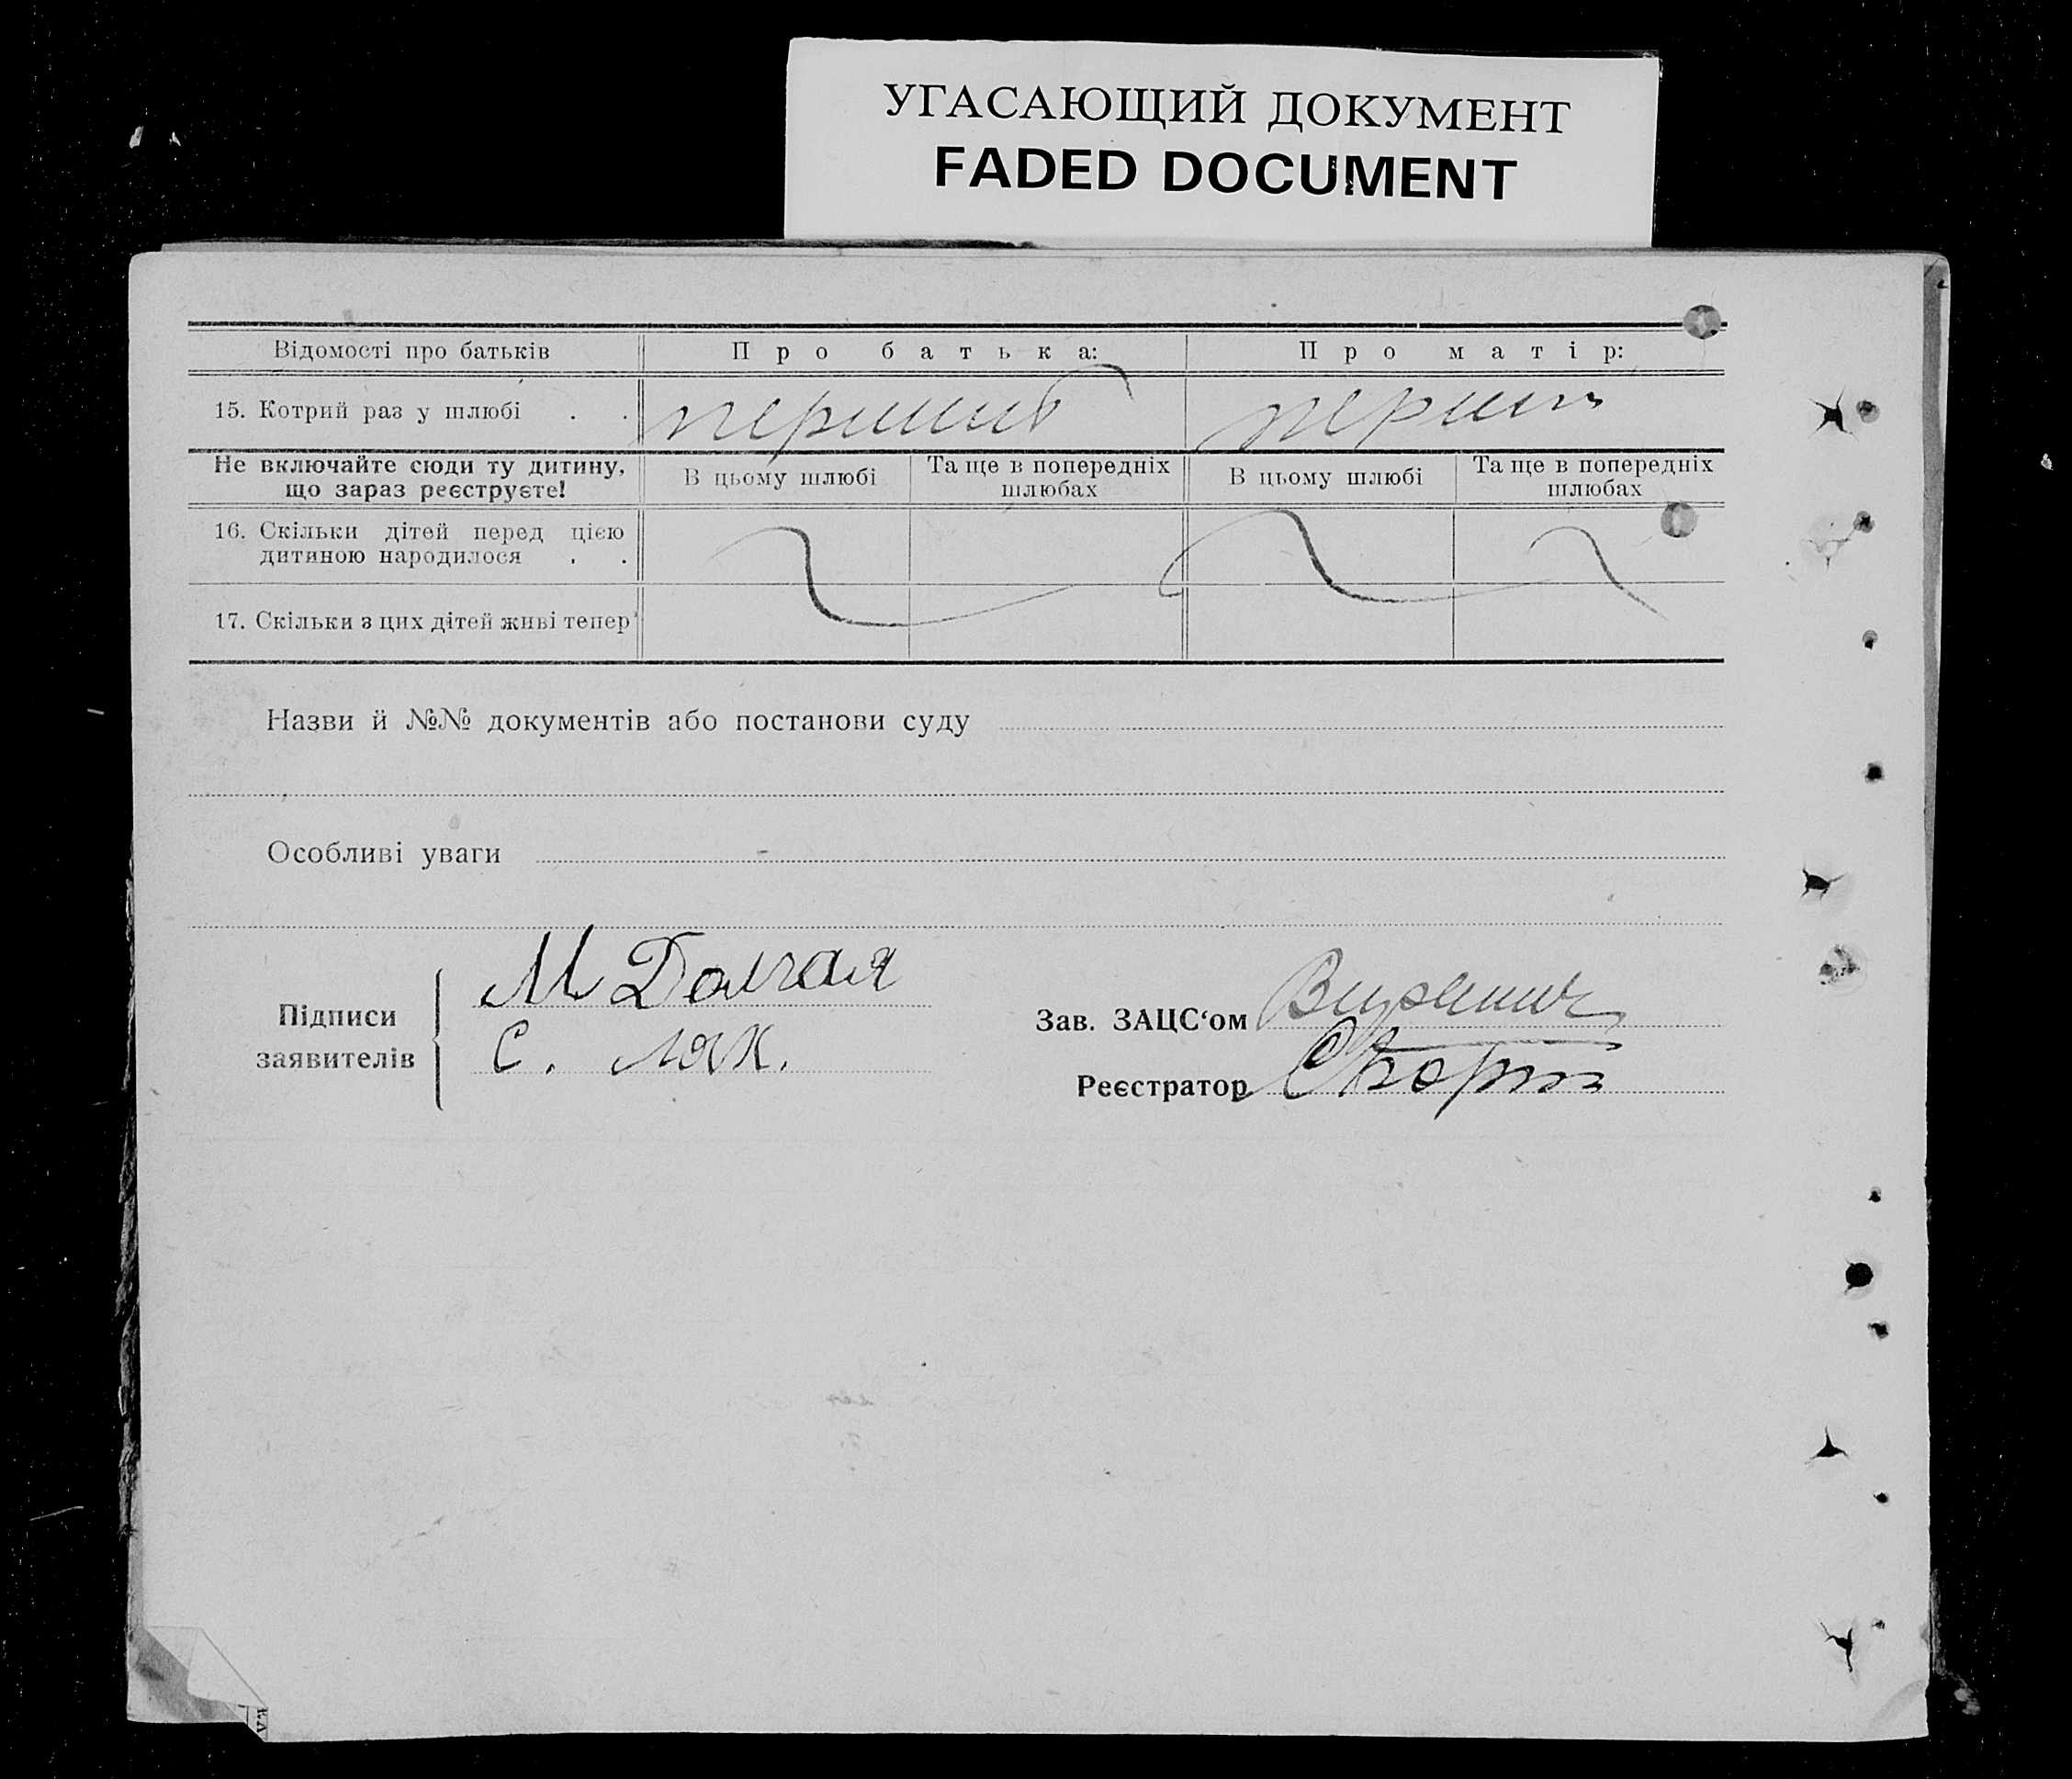 УГАСАЮЩИЙ ДОКУМЕНТ
FADED DOCUMENT
Відомості про батьків
Про батька:
Про матір:
15. Котрий раз у шлюбі . .
перший
перший
Не включайте сюди ту дитину,
що зараз реєструєте!
В цьому шлюбі
Та ще в попередніх
шлюбах
В цьому шлюбі
Та ще в попередніх
шлюбах
16. Скільки дітей перед цією
дитиною народилося . .
17. Скільки з цих дітей живі тепер
Назви й №№ документів або постанови суду
Особливі уваги
Підписи
заявителів
М Долгая
С. Лях.
Зав. ЗАЦС‘ом
Реєстратор